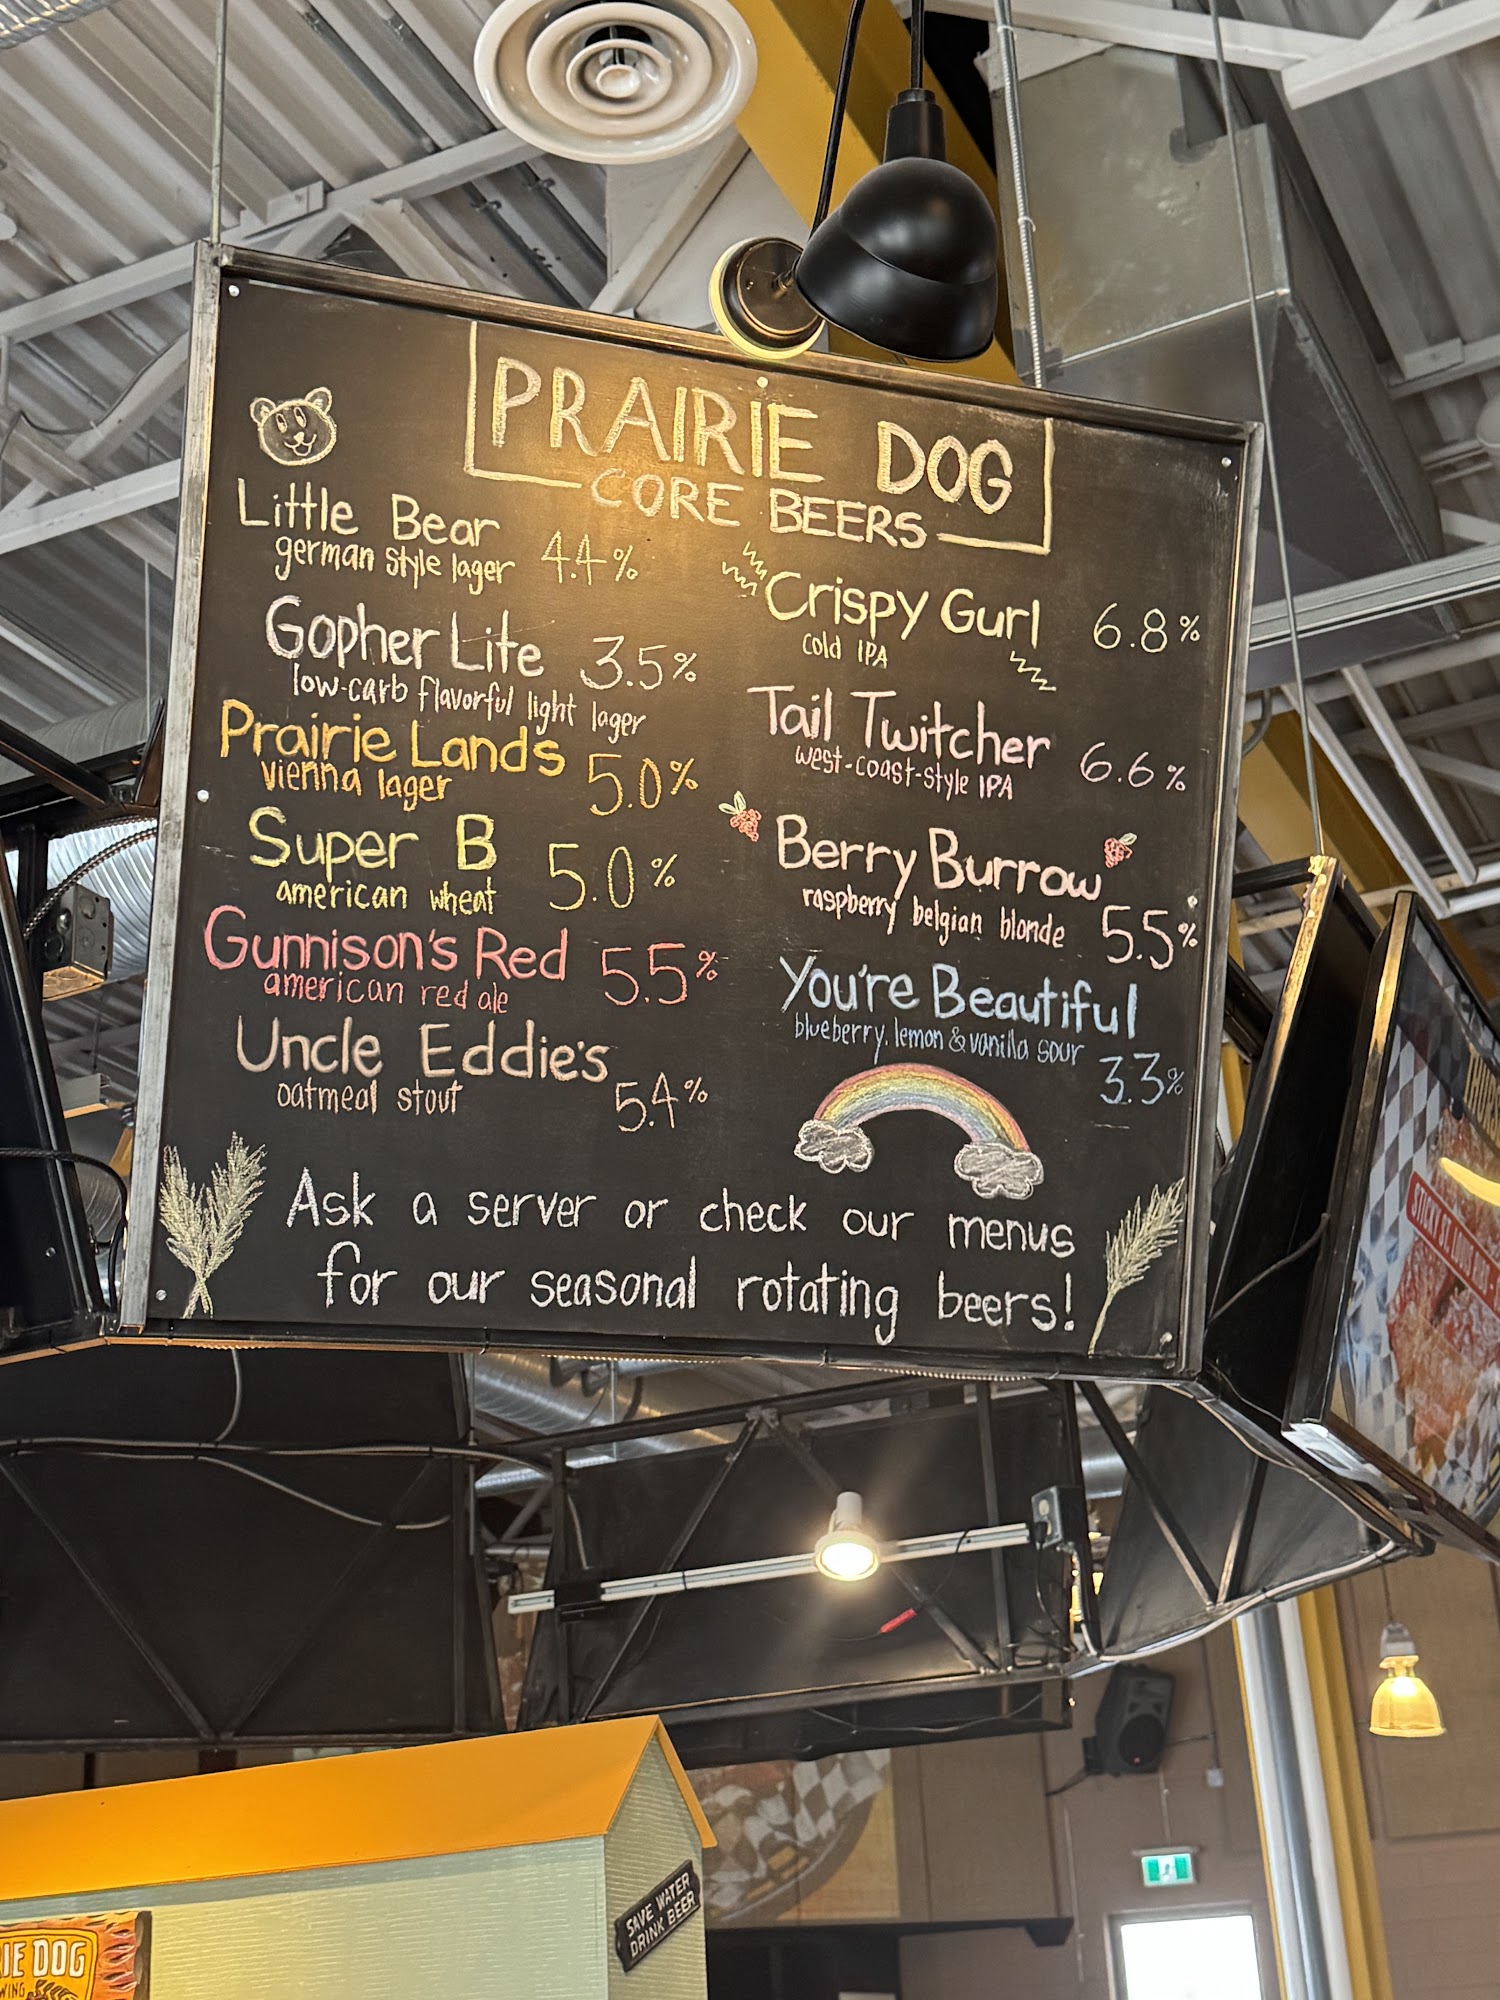 PRAIRIE DOG
CORE BEERS
Little Bear
german style lager 4.4%
Gopher Lite 3.5%
low-carb flavorful light lager
Prairie Lands
vienna lager 5.0%
Super B
american wheat 5.0%
Gunnison's Red 5.5%
american red ale
Uncle Eddie's
oatmeal stout 5.4%
Crispy Gurl 6.8%
cold IPA
Tail Twitcher 6.6%
west-coast-style IPA
Berry Burrow
raspberry belgian blonde 5.5%
You're Beautiful
blueberry, lemon & vanilla sour
3.3%
Ask a server or check our menus
for our seasonal rotating beers!
SAVE WATER
DRINK BEER
IE DOG
WING